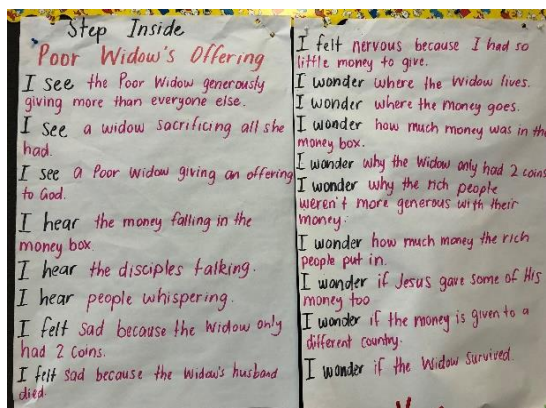 Step Inside
Poor Widow's Offering
I see the Poor Widow generously
giving more than everyone else.
I see a widow sacrificing all she
had.
I see a Poor Widow giving an offering
to God.
I hear the money falling in the
money box
I hear the disciples talking.
I hear people whispering.
I felt sad because the Widow only
had 2 coins.
I felt sad because the Widow's husband
died.
I felt nervous because I had so
little money to give.
I wonder where the Widow lives.
I wonder where the money goes.
I wonder how much money was in the
money box.
I wonder why the Widow only had 2 coins
I wonder why the rich people
weren't more generous with their
money.
I wonder how much money the rich
people put in.
I wonder if Jesus gave some of His
money too
I wonder if the money is given to a
different country.
I wonder if the Widow survived.